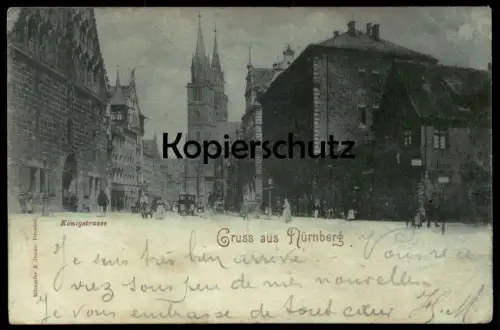 Kopierschutz
Königstrasse
Gruss aus Nürnberg
Je suis très bien arrivé. Vous rece-
vrez sous peu de mes nouvelles.
Je vous embrasse de tout cœur